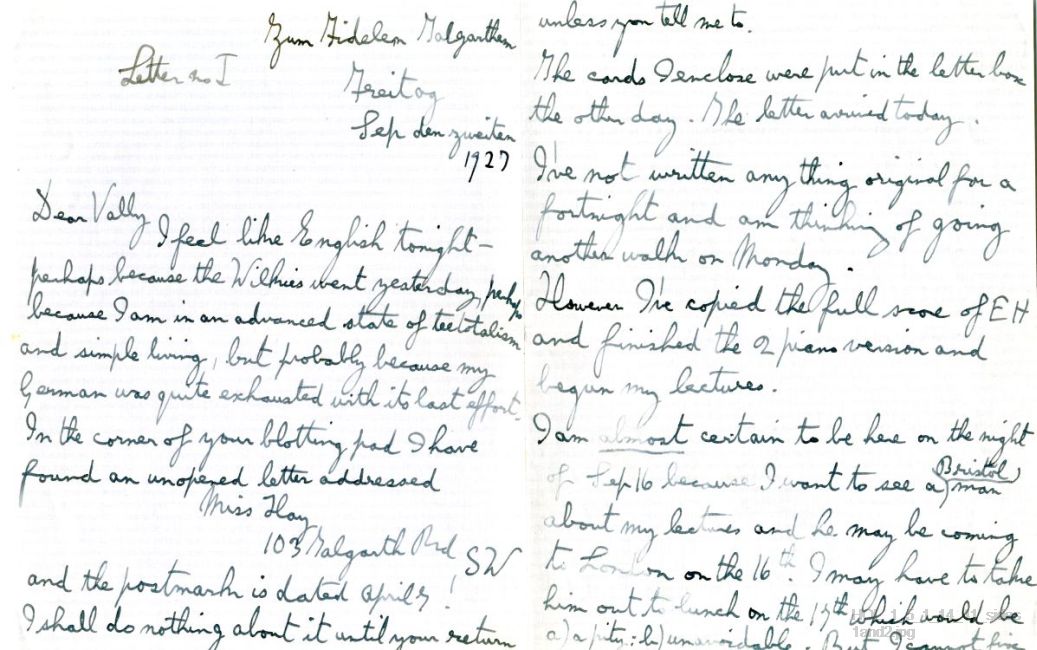 Zum Fidelem Talgarthem
Letter no I
Freitag
Sep den zweiten
1927
Dear Vally
I feel like English tonight -
perhaps because the Wilkies went yesterday, perhaps
because I am in an advanced state of teetotalism
and simple living, but probably because my
German was quite exhausted with its last effort.
In the corner of your blotting pad I have
found an unopened letter addressed
Miss Hay
103 Talgarth Rd
SW
and the postmark is dated April 9!
I shall do nothing about it until your return
unless you tell me to.
The cards I enclose were put in the letter box
the other day. The letter arrived today.
I've not written any thing original for a
fortnight and am thinking of going
another walk on Monday.
However I've copied the full score of EH
and finished the 2 piano version and
begun my lectures.
I am almost certain to be here on the night
of Sep 16 because I want to see a (Bristol) man
about my lectures and he may be coming
to London on the 16th. I may have to take
him out to lunch on the 17th which would be
a) a pity: b) unavoidable. But I cannot
1and2.jpg